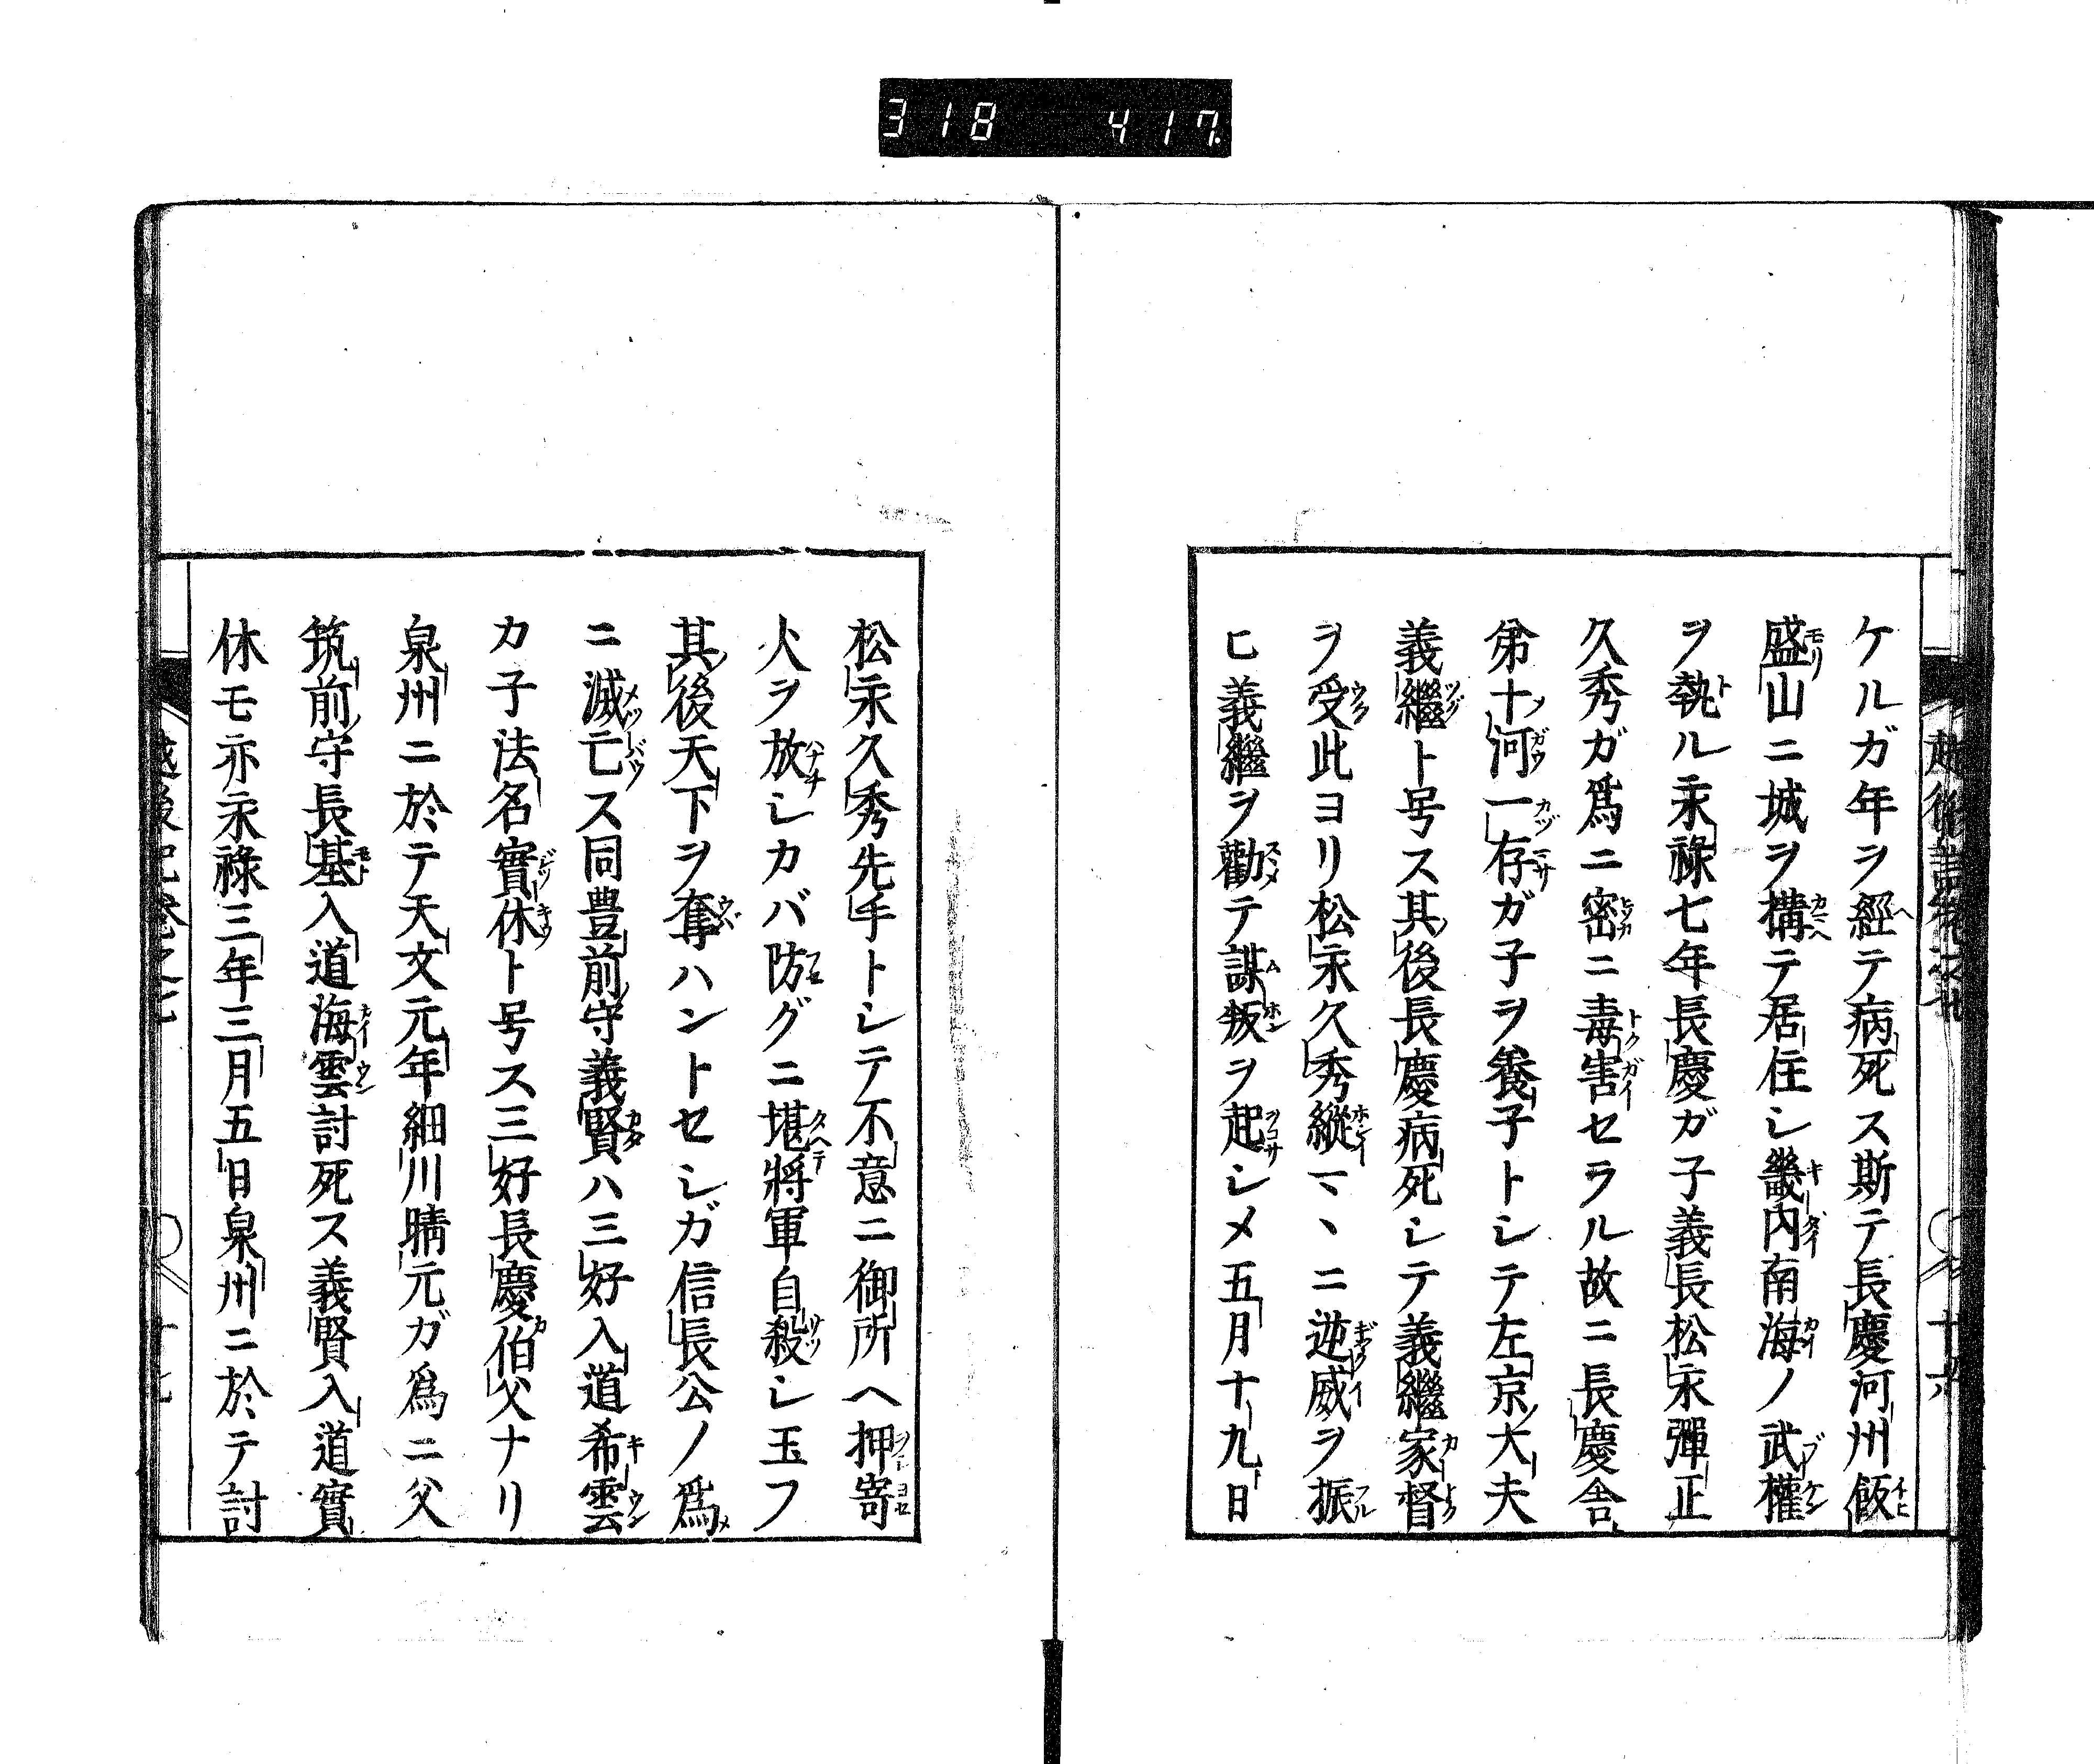 318 417
ケルガ年ヲ經テ病死ス斯テ長慶河州飯
盛山ニ城ヲ構テ居住シ畿内南海ノ武權
ヲ執ル永祿七年長慶ガ子義長松永彈正
久秀ガ爲ニ密ニ毒害セラル故ニ長慶舎
弟十河一存ガ子ヲ養子トシテ左京大夫
義繼ト号ス其後長慶病死シテ義繼家督
ヲ受此ヨリ松永久秀縱マヽニ逆威ヲ振
ヒ義繼ヲ勸テ謀叛ヲ起シメ五月十九日
松永久秀先手トシテ不意ニ御所ヘ押寄
火ヲ放シカバ防グニ堪將軍自殺シ玉フ
其後天下ヲ奪ハントセシガ信長公ノ爲
ニ滅亡ス同豊前守義賢ハ三好入道希雲
カ子法名實休ト号ス三好長慶伯父ナリ
泉州ニ於テ天文元年細川晴元ガ爲ニ父
筑前守長基入道海雲討死ス義賢入道實
休モ亦永祿三年三月五日泉州ニ於テ討